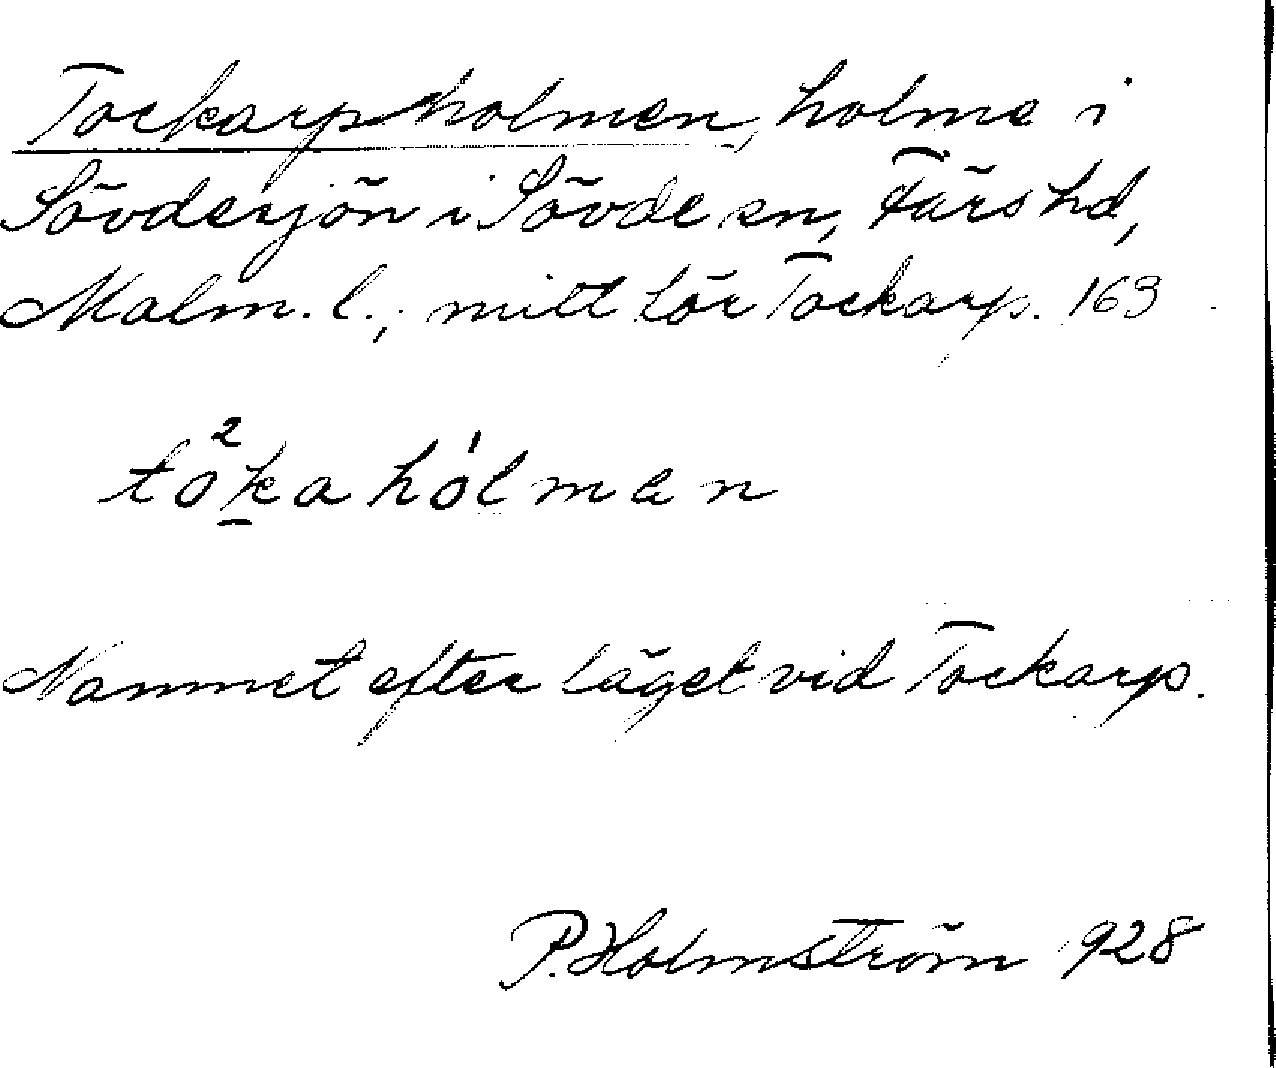 Tockarpsholmen, holme i
Sövdesjön i Sövde sn, Färs hd,
Malm. l.; mitt för Tockarp. 163
to²kahó́lmen
Namnet efter läget vid Tockarp.
P. Holmström 928